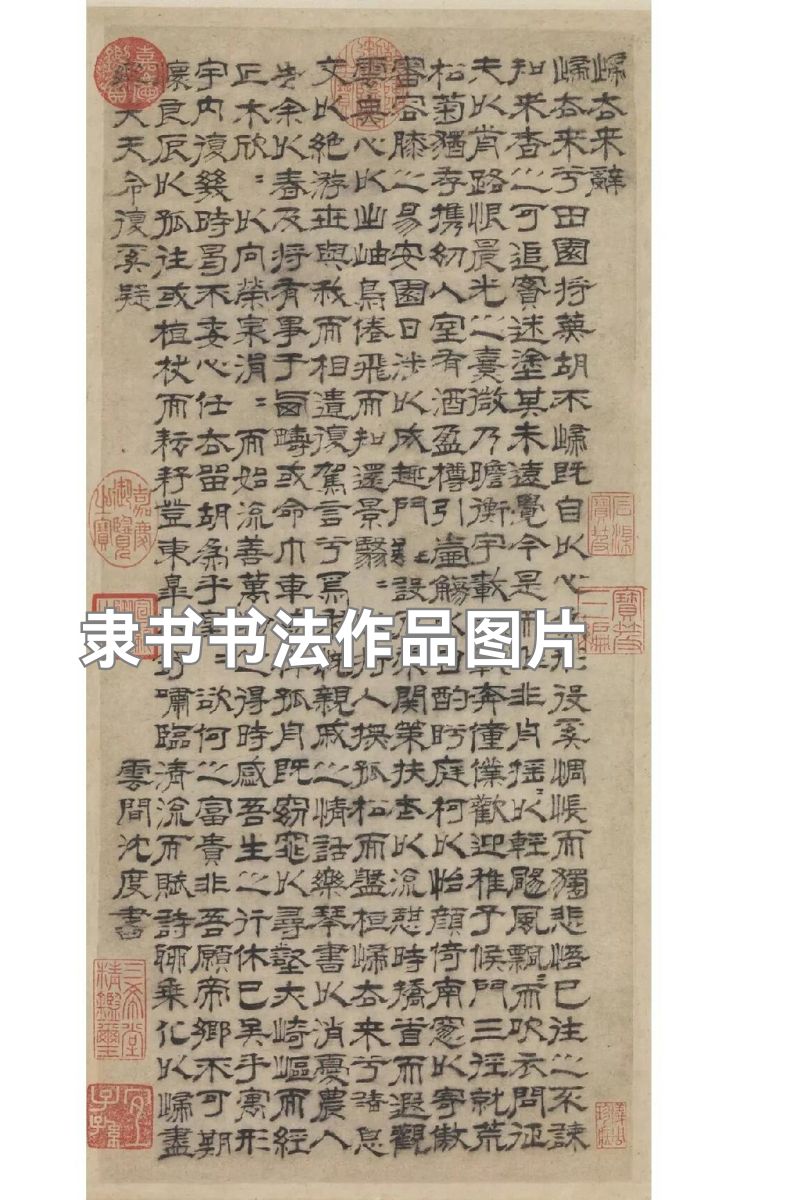 歸去来辤
歸去来兮田園将蕪胡不歸既自以心形役奚惆悵而獨悲悟已往之不諫
知来者之可追實迷塗其未遠覺今是而非舟摇〻以輕颺風飄〻而吹衣問征
夫以前路恨晨光之熹微乃瞻衡宇載奔僮僕歡迎稚子候門三徑就荒
松菊猶存攜幼入室有酒盈樽引壺觴以自酌眄庭柯以怡顔倚南窓以寄傲
審容膝之易安園日涉以成趣門雖設而關策扶老以流憩時矯首而遐觀
雲無心以出岫鳥倦飛而知還景翳〻入撫孤松而盤桓歸去来兮請息
交以絶游世與我而相遺復駕言兮焉親戚之情話樂琴書以消憂農人
告余以春及将有事于西疇或命巾車孤舟既窈窕以尋壑亦崎嶇而經
丘木欣〻以向榮泉涓〻而始流善萬得時感吾生之行休已矣乎寓形
宇内復幾時曷不委心任去留胡為乎〻欲何之富貴非吾願帝鄉不可期
懷良辰以孤往或植杖而耘耔登東皋嘯臨清流而賦詩聊乘化以歸盡
樂夫天命復奚疑
雲間沈度書
隶书书法作品图片
嘉慶御覽之寶
三希堂精鑑璽